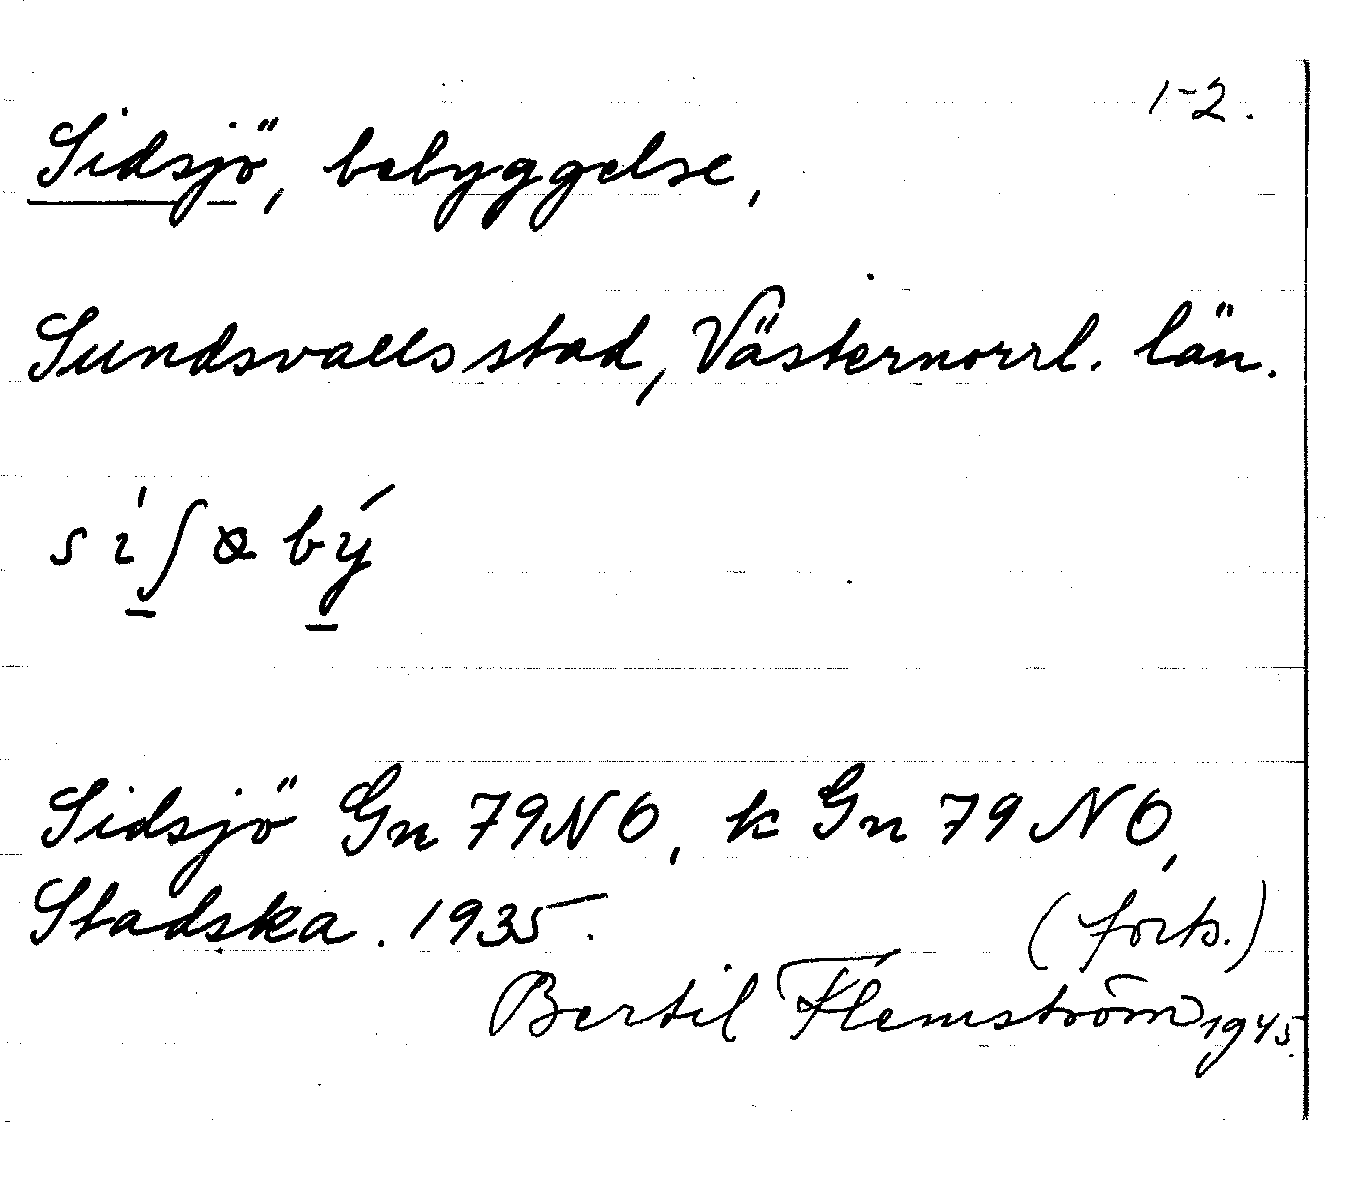 1-2.
Sidsjö, bebyggelse,
Sundsvalls stad, Västernorrl. län.
Sidsjö Gn 79 NO, k Gn 79 NO,
Stadska. 1935.
(forts.)
Bertil Flemström 1945.